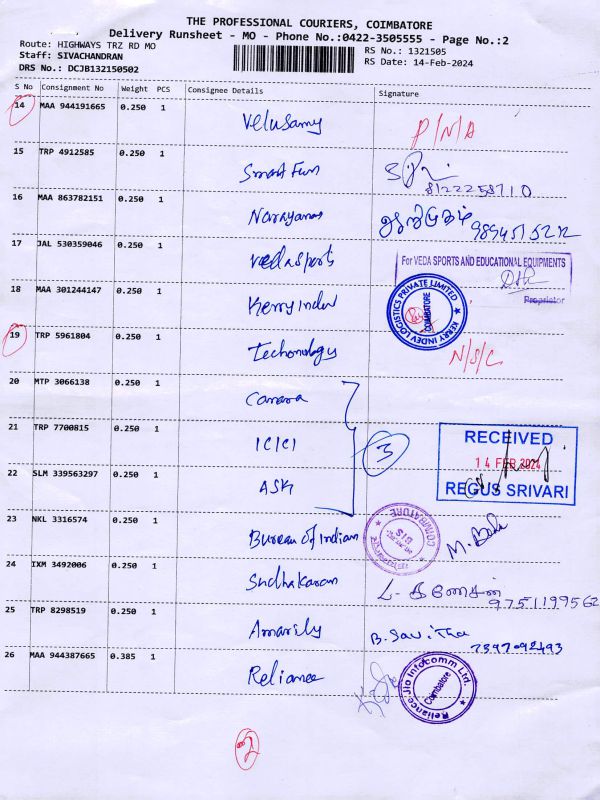 THE PROFESSIONAL COURIERS, COIMBATORE
Delivery Runsheet - MO - Phone No.:0422-3505555 - Page No.:2
Route: HIGHWAYS TRZ RD MO
RS No.: 1321505
Staff: SIVACHANDRAN
RS Date: 14-Feb-2024
DRS No.: DCJB132150502
S No Consignment No Weight PCS Consignee Details Signature
14 MAA 944191665 0.250 1 Velusamy P/N/A
15 TRP 4912585 0.250 1 Smart Fun
8122258710
16 MAA 863782151 0.250 1 Narayanas
17 JAL 530359046 0.250 1 Veda sports
For VEDA SPORTS AND EDUCATIONAL EQUIPMENTS
Proprietor
18 MAA 301244147 0.250 1 Kerry Indev
KERRY INDEV LOGISTICS PRIVATE LIMITED
COIMBATORE
19 TRP 5961804 0.250 1 Techonology N/S/C
20 MTP 3066138 0.250 1 Canara
21 TRP 7700815 0.250 1 ICICI
3
RECEIVED
14 FEB 2024
REGUS SRIVARI
22 SLM 339563297 0.250 1 ASK
23 NKL 3316574 0.250 1 Bureau of Indian
COIMBATORE
BIS
24 IXM 3492006 0.250 1 Sudhakaran
9751199562
25 TRP 8298519 0.250 1 Amarily B. Savitha
26 MAA 944387665 0.385 1 Reliance
Reliance Jio Infocomm Ltd.
Coimbatore
2